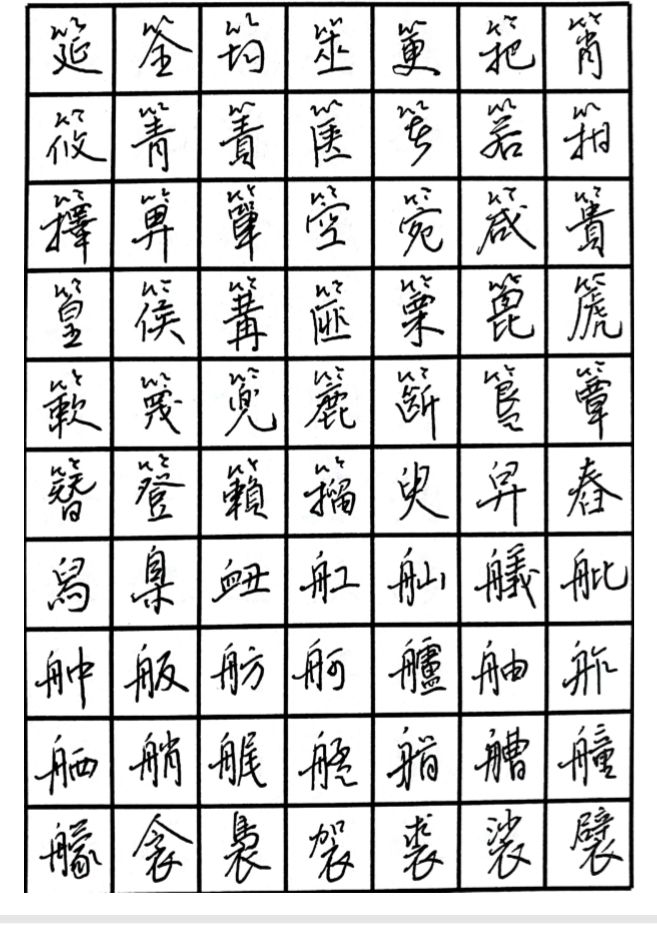 筵 筌 筠 筮 筻 筢 筲
筱 箐 簀 篋 箸 箬 箝
籜 箅 簞 箜 箢 箴 簣
篁 篌 篝 篚 篥 篦 篪
簌 篾 篼 簏 簖 簋 簟
簪 簦 籟 籀 臾 舁 舂
舄 臬 衄 舡 舢 艤 舭
舯 舨 舫 舸 艫 舳 舴
舾 艄 艉 艋 艏 艚 艟
艨 衾 裊 袈 裘 裟 襞